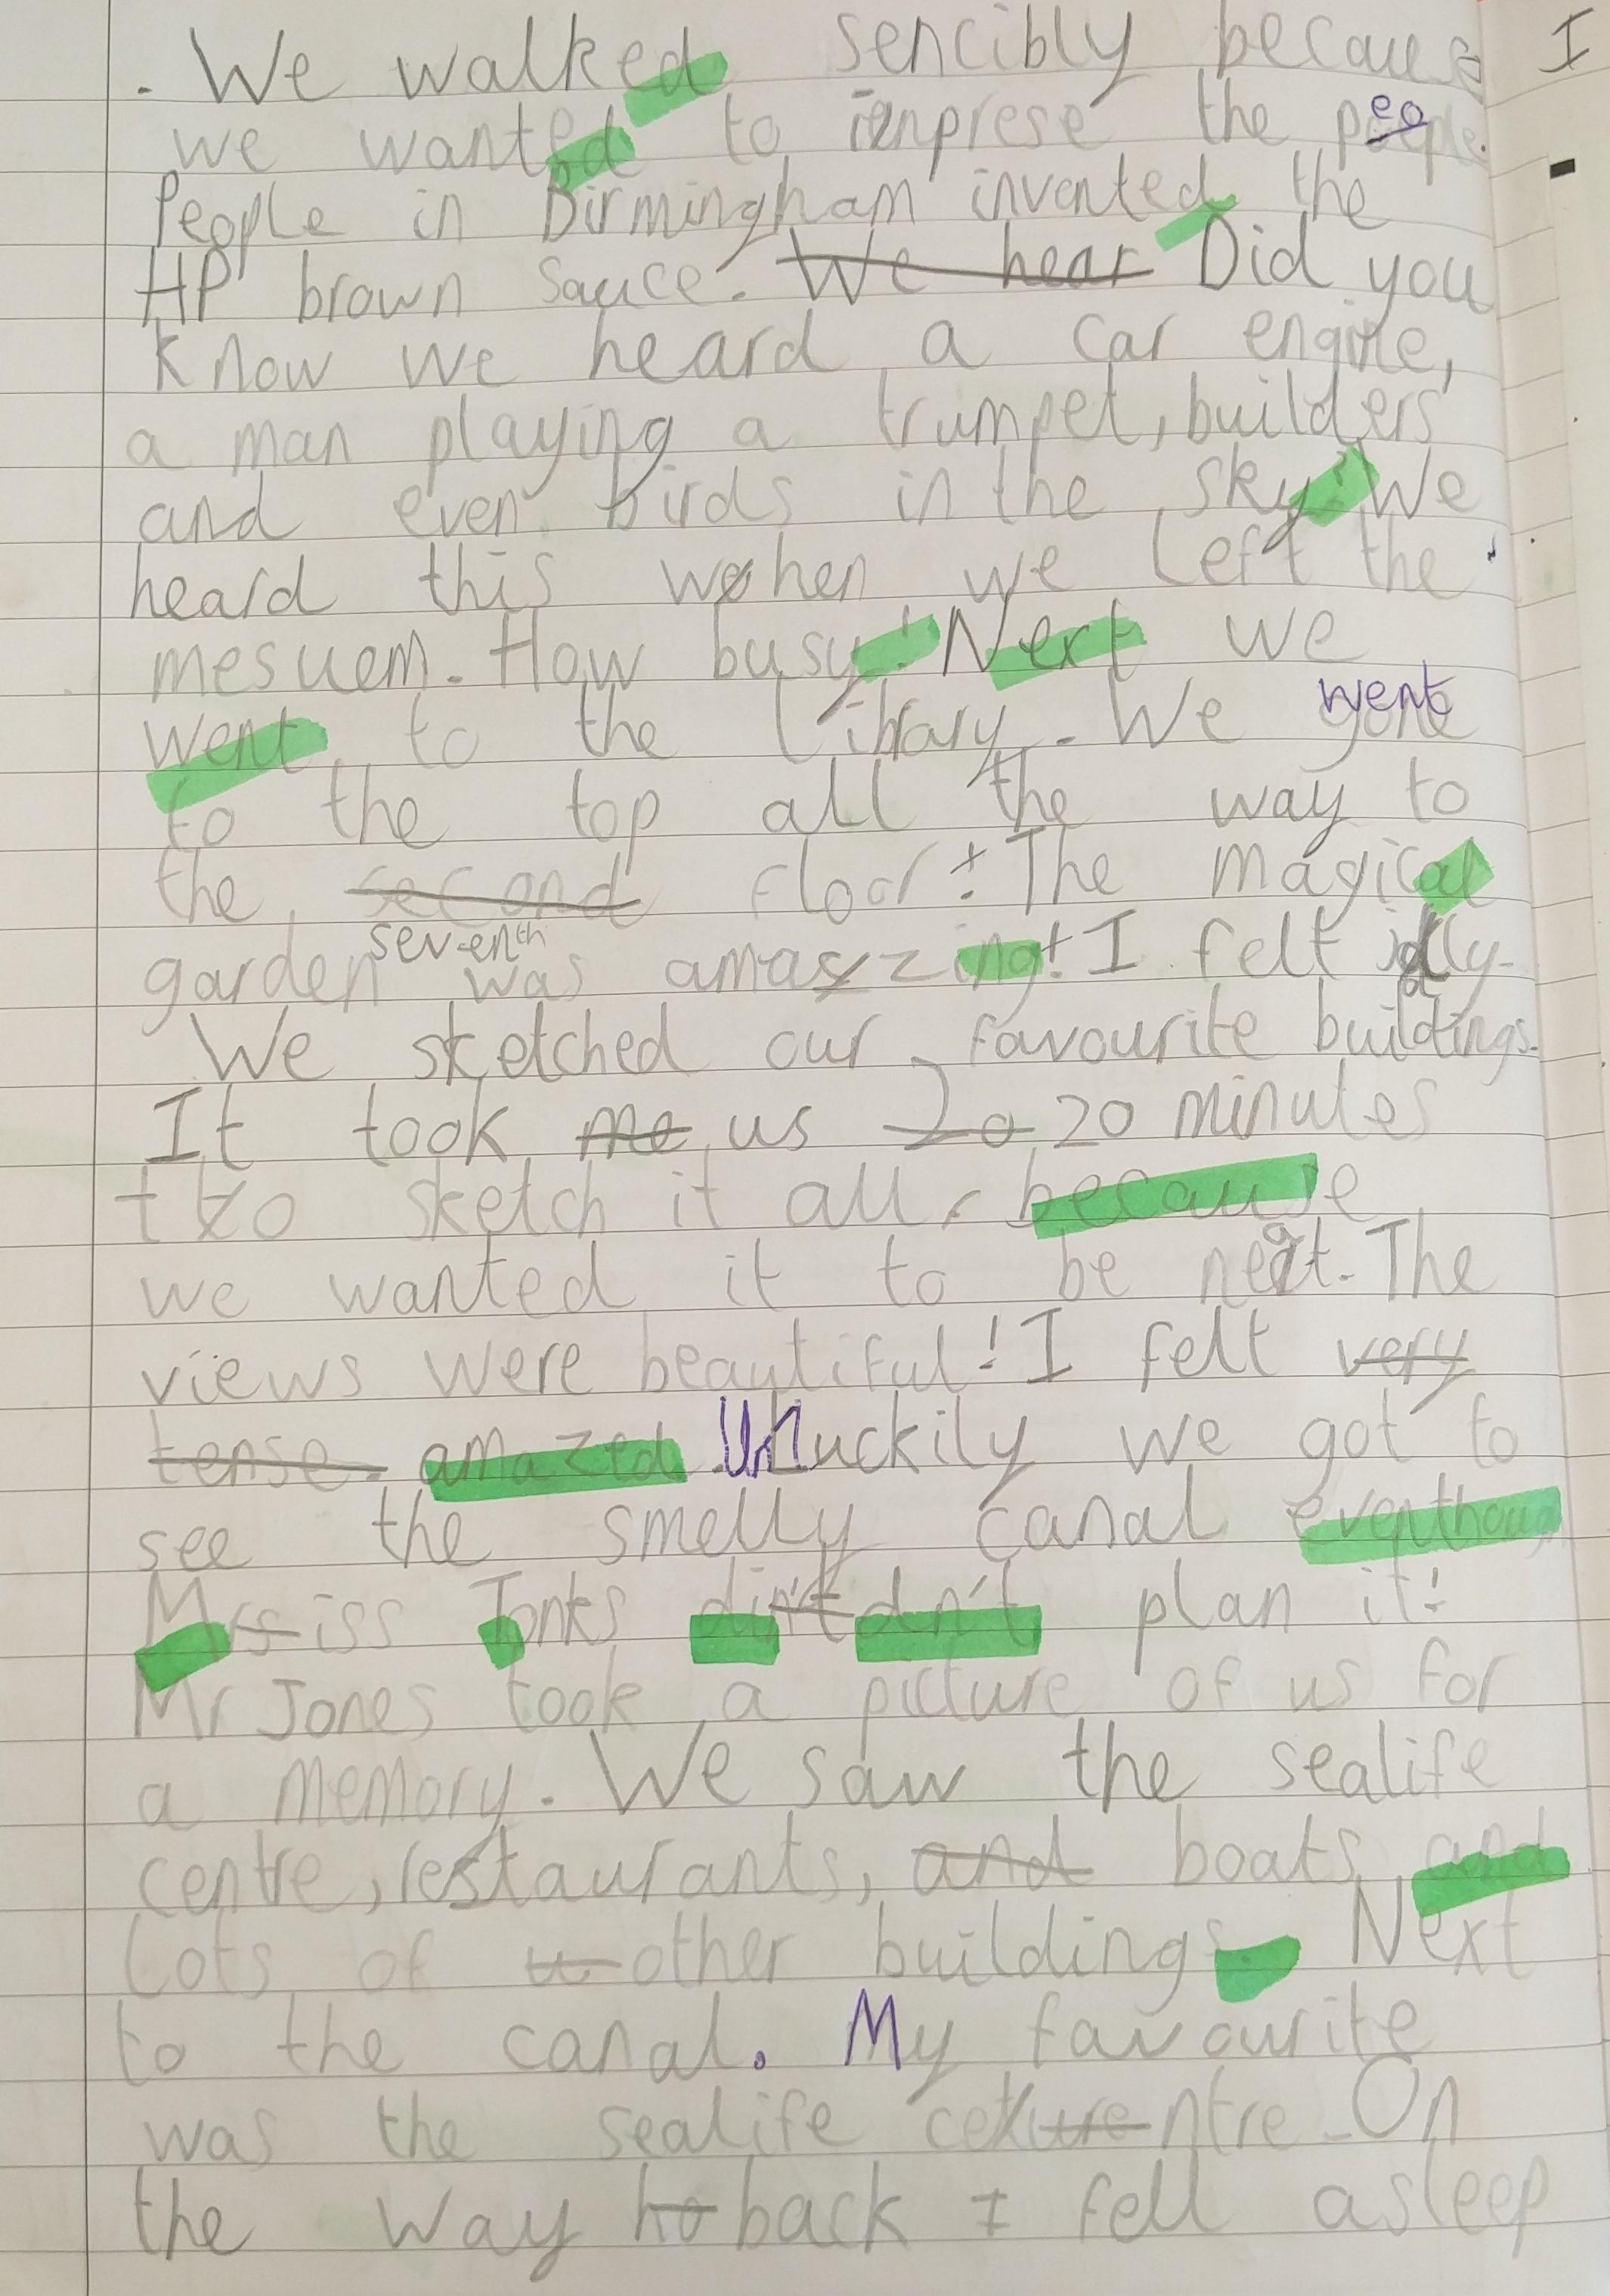 . We walked sencibly because I
we wanted to imprese the people.
People in Birmingham invented the
HP brown sauce. We hear Did you
know we heard a car engine,
a man playing a trumpet, builders
and even birds in the sky? We
heard this when we left the
mesuem. How busy! Next we
went to the library. We went
to the top all the way to
the second seventh floor! The magical
garden was amazing! I felt jolly.
We sketched our favourite buildings.
It took me us 20 20 minutes
to sketch it all, because
we wanted it to be neat. The
views were beautiful! I felt very
tense. amazed. Unluckily we got to
see the smelly canal eventhoug
Mrs iss Tonks din't dn't plan it!
Mr Jones took a picture of us for
a memory. We saw the sealife
centre, restaurants, and boats and
lots of other buildings. Next
to the canal. My favourite
was the sealife centre. On
the way ho back I fell asleep